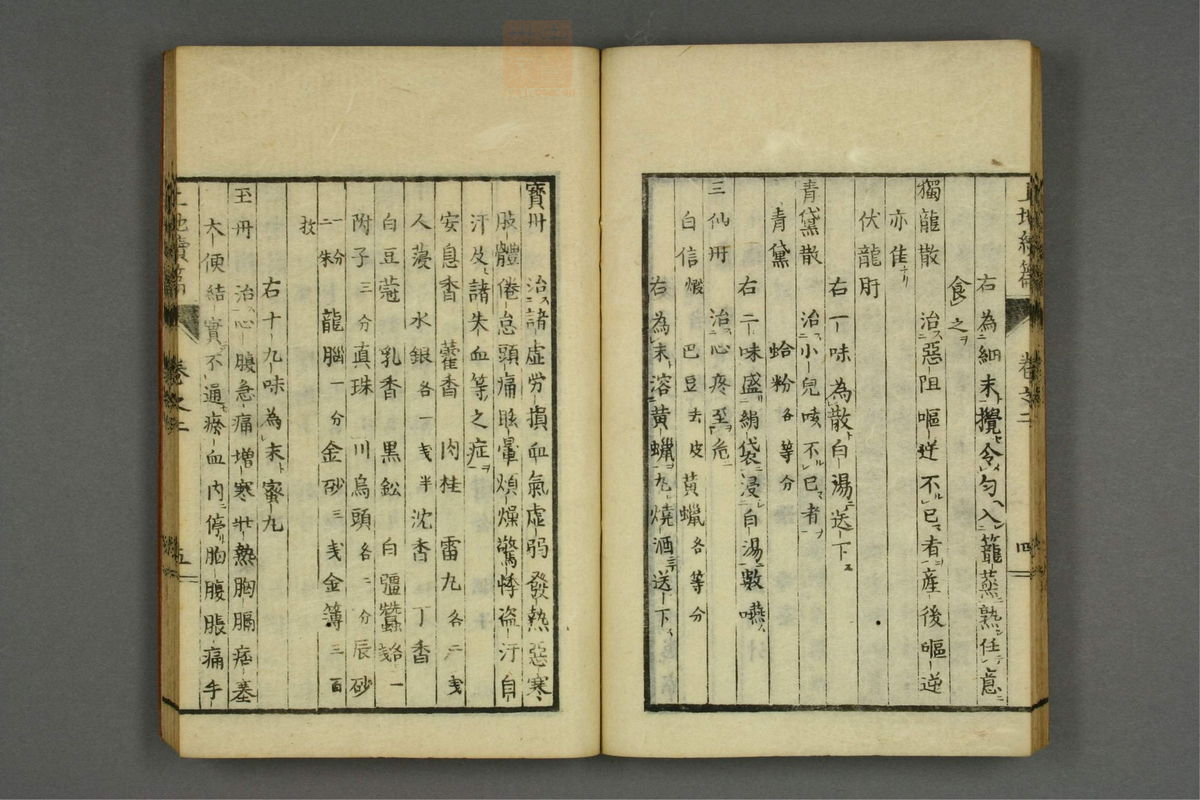 右為細末攪令勻入籠蒸熟任意
食之
獨龍散 治惡阻嘔逆不已者產後嘔逆
亦佳
伏龍肝
右一味為散白湯送下
青黛散 治小兒咳不已者
青黛 蛤粉各等分
右二味盛絹袋浸白湯數嚥
三仙丹 治心疼至危
白信煅 巴豆去皮 黃蠟各等分
右為末溶黃蠟丸燒酒送下
卷之二
四
寶丹 治諸虛勞損血氣虛弱發熱惡寒
肢體倦怠頭痛眩暈煩燥驚悸盜汗自
汗及諸失血等之症
安息香 藿香 肉桂 雷丸各二戔
人蓡 水銀各一戔半 沈香 丁香
白豆蔻 乳香 黑鉛 白殭蠶各一
附子三分 真珠 川烏頭各二分 辰砂
一朱 龍腦一分 金砂三戔 金簿三百
枚
右十九味為末蜜丸
玉丹 治心腹急痛增寒壯熱胸膈痞塞
大便結實不通瘀血內停胸腹脹痛手
卷之二
五